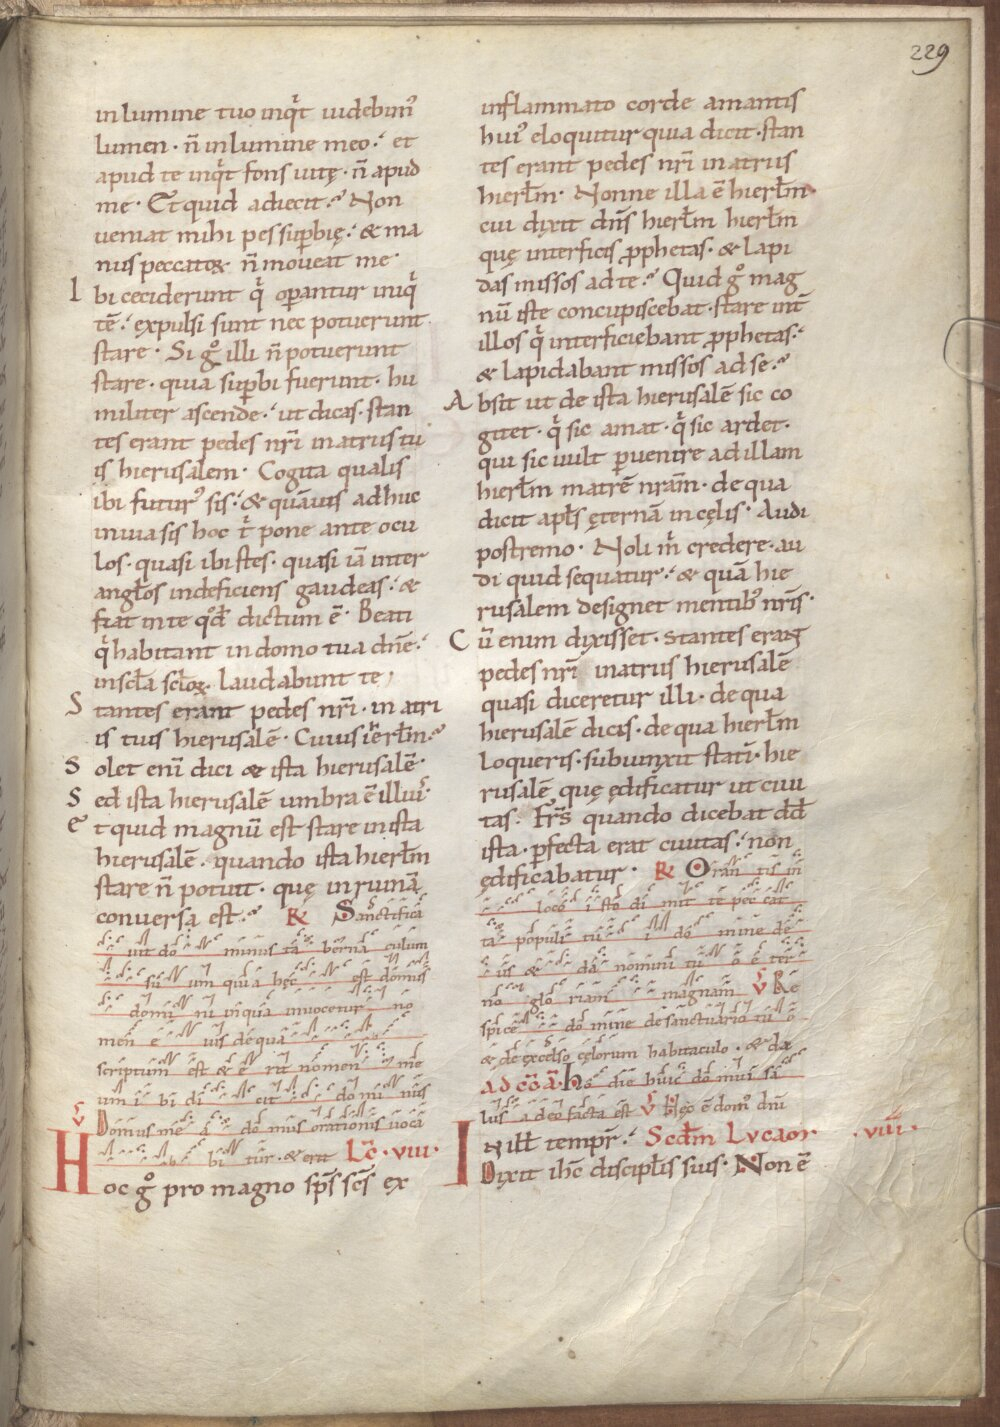 229
in lumine tuo inqt̄ uidebim᾽
lumen · n̄ in lumine meo · et
apud te inqt̄ fons uitę · n̄ apud
me · Et quid adiecit · Non
ueniat mihi pes suꝑbię · & ma
nus peccatoꝝ n̄ moueat me ·
I bi ceciderunt q̄ oꝑantur iniq̄
tē · expulsi sunt nec potuerunt
stare · Si gͦ illi n̄ potuerunt
stare · quia suꝑbi fuerunt · hu
militer ascende · ut dicas · stan
tes erant pedes nr̄i in atrus tu
is hierusalem · Cogita qualis
ibi futur᾽ sis · & quāuis adhuc
in uia sis hoc t̄ pone ante ocu
los · quasi ibi stes · quasi iā inter
angłos indeficiens gaudeas · &
fiat in te qd̄ dictum ē · Beati
q̄ habitant in domo tua dn̄e ·
in scła scłoꝝ · laudabunt te
S tantes erant pedes nr̄i · in atri
is tuis hierusalē · Cuius ierłm
S olet eni dici & ista hierusalē ·
S ed ista hierusalē umbra ē illiu᾽ ·
e t quid magnū est stare in ista
hierusalē · quando ista hierłm
stare n̄ potuit · quę in ruinā
conuersa est · R Sanctifica
uit do minus ta berna culum
su um quia hęc est domus
domi ni in qua inuocetur no
men e ius de qua
scriptum est & e rit nomen me
um i bi di cit do mi nus
V Domus me a do mus orationis uoca
bi tur · & erit Lc̄ · viii ·
H oc gͦ pro magno sp̄s sc̄s ex
inflammato corde amantis
hui᾽ eloquitur quia dicit · stan
tes erant pedes nr̄i in atrus
hierłm · Nonne illa ē hierłm
cui dixit dn̄s hierłm hierłm
quę interficis ꝓphetas · & lapi
das missos ad te · Quid gͦ mag
nū iste concupiscebat · stare int̄
illos q̄ interficiebant ꝓphetas ·
& lapidabant missos ad se ·
A bsit ut de ista hierusalē sic co
gitet · q̄ sic amat · q̄ sic ardet ·
qui sic uult ꝑuenire ad illam
hierłm matrē nrām · de qua
dicit apłs ęternā in cęlis · Audi
postremo · Noli m̄ credere · au
di quid sequatur · & quā hie
rusalem designet mentib᾽ nr̄is ·
C ū enim dixisset · stantes erant
pedes nr̄i in atrus hierusalē
quasi diceretur illi · de qua
hierusalē dicis · de qua hierłm
loqueris · subiunxit statī · hie
rusalē quę ędificatur ut ciui
tas · Fr̄s quando dicebat dd̄
ista · ꝑfecta erat ciuitas · non
ędificabatur · R Oran tis in
loco i sto di mit te pec cat
ta populi tu i do mine &
& da nomini tu o
no glo riam magnam V Re
spice do mine de sanctuario tu o
& de excelso cęlorum habitaculo · &
ad cō a ho die huic do mui sa
lus a deo facta est V Rex ē dom᾽ dn̄i
I n illł tempr̄ · Scdm Lucaor · viiii ·
Dixit ihc̄ disciplīs suis · Non ē